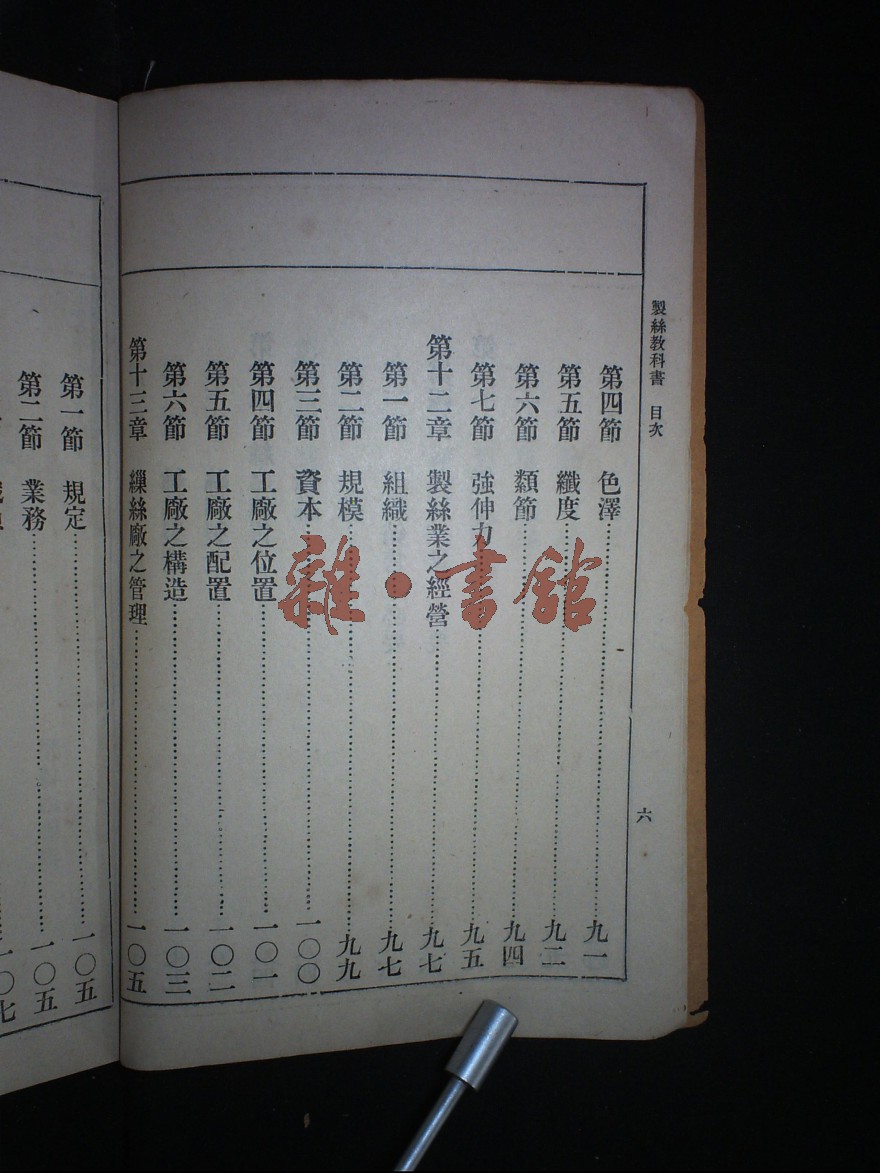 製絲教科書 目次
六
第四節 色澤……九一
第五節 纖度……九二
第六節 纇節……九四
第七節 強伸力……九五
第十二章 製絲業之經營……九七
第一節 組織……九七
第二節 規模……九九
第三節 資本……一〇〇
第四節 工廠之位置……一〇一
第五節 工廠之配置……一〇二
第六節 工廠之構造……一〇三
第十三章 繅絲廠之管理……一〇五
第一節 規定……一〇五
第二節 業務……一〇五
一〇七
雜·書館